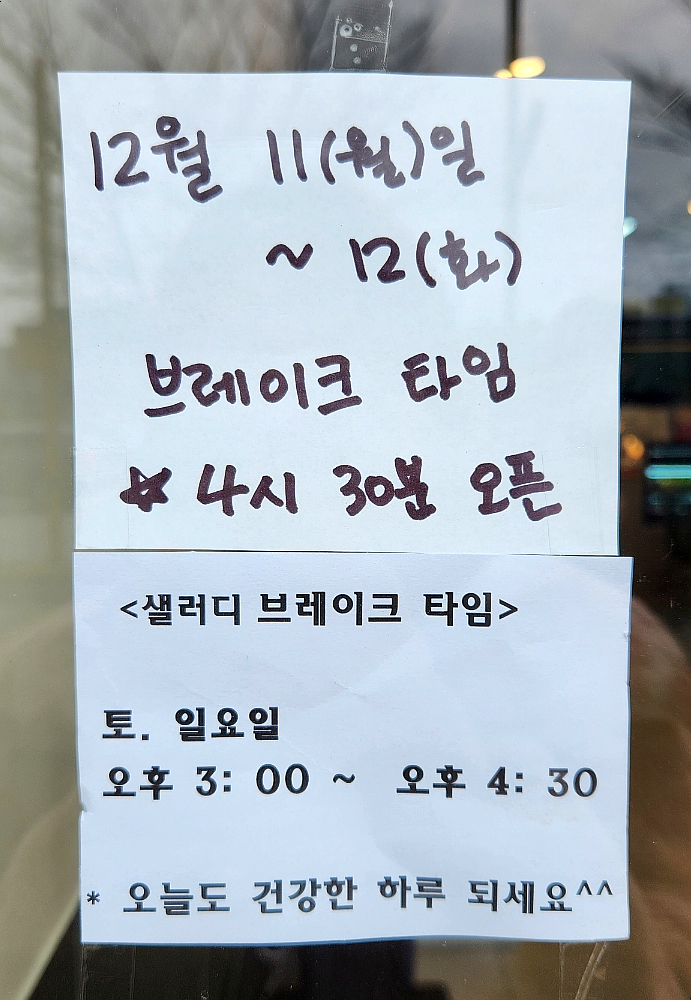 12월 11(월)일
~ 12(화)
브레이크 타임
☆ 4시 30분 오픈
<샐러디 브레이크 타임>
토. 일요일
오후 3: 00 ~ 오후 4: 30
* 오늘도 건강한 하루 되세요^^